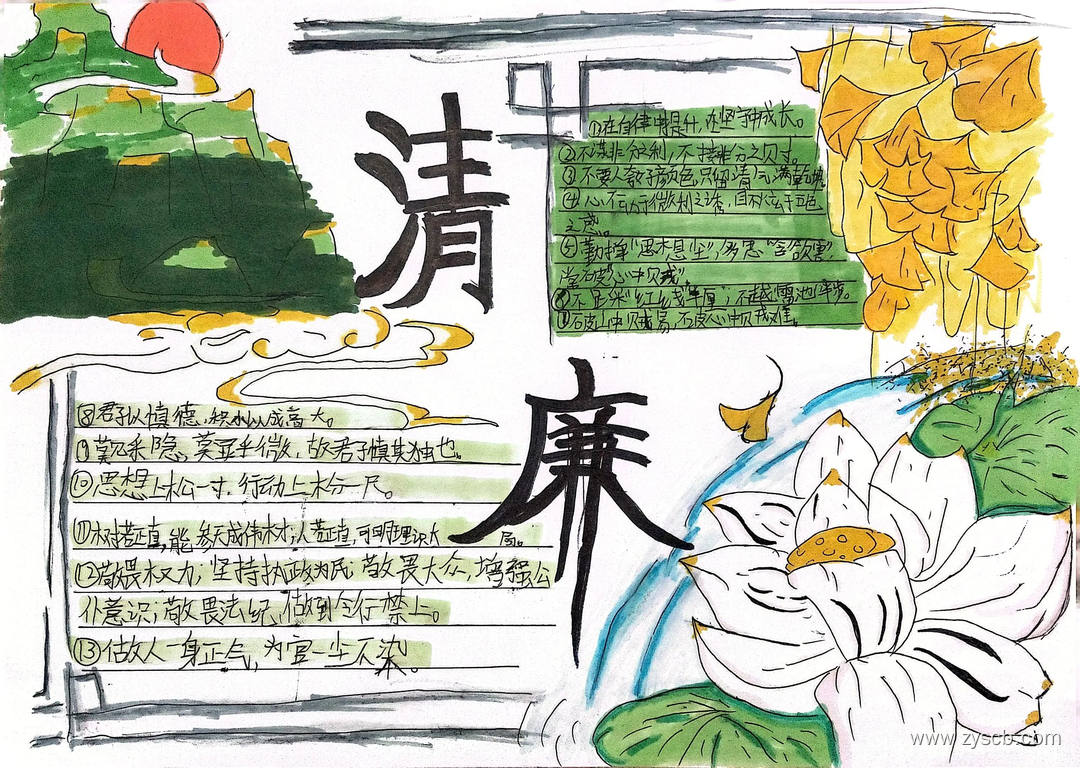 清
廉
①在自律中提升,在坚守中成长。
②不谋非分之利,不接非分之财。
③不要人夸颜色,只留清气满乾坤
④心不动于微利之诱,目不眩于五色
之惑。
⑤勤掸"思想尘",多思"贪欲害",
常破"心中贼"
不踩"红线"半厘,不越"雷池"半步。
破山中贼易,不破心中贼难。
⑧君子以慎德,积小以成高大。
⑨莫见乎隐,莫显乎微,故君子慎其独也。
⑩思想上松一寸,行动上松一尺。
⑪木对若直,能参天成伟材;人若正直,可明理识大局。
⑫敬畏权力,坚持执政为民;敬畏大众,增强公
仆意识;敬畏法纪,做到令行禁止。
⑬做人一身正气,为官一尘不染。
www.zyscb.com